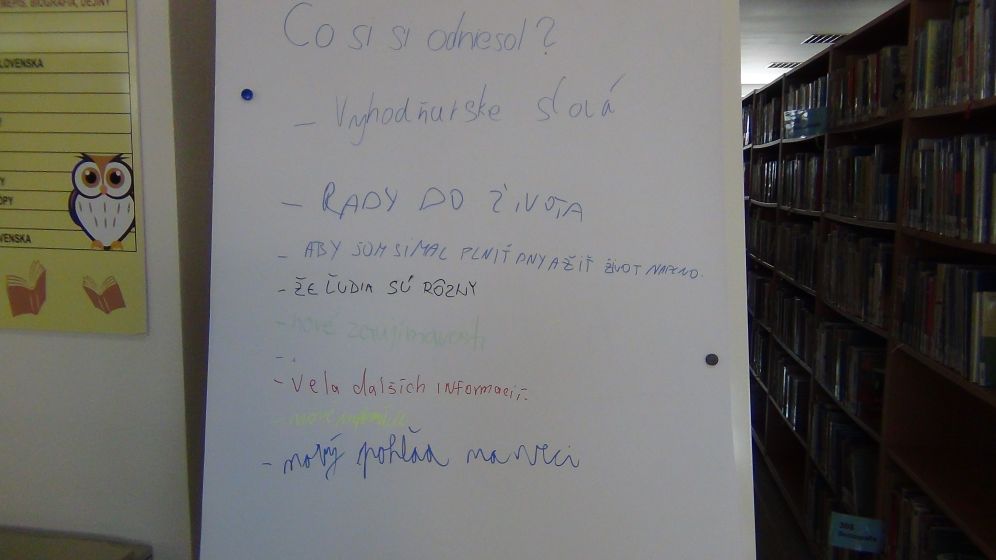 MEPIS, BIOGRAFIA, DEJINY
LOVENSKA
Y
ÓPY
VENSKA
Čo si si odniesol?
- Vyhodňurske slová
- RADY DO ŽIVOTA
- ABY SOM SI MAL PLNIŤ SNY A ŽIŤ ŽIVOT NAPLNO.
- ŽE ĽUDIA SÚ RÔZNY
- nové zaujímavosti
- .
- Veľa ďalších informacií.
- nové
- nový pohľad na veci